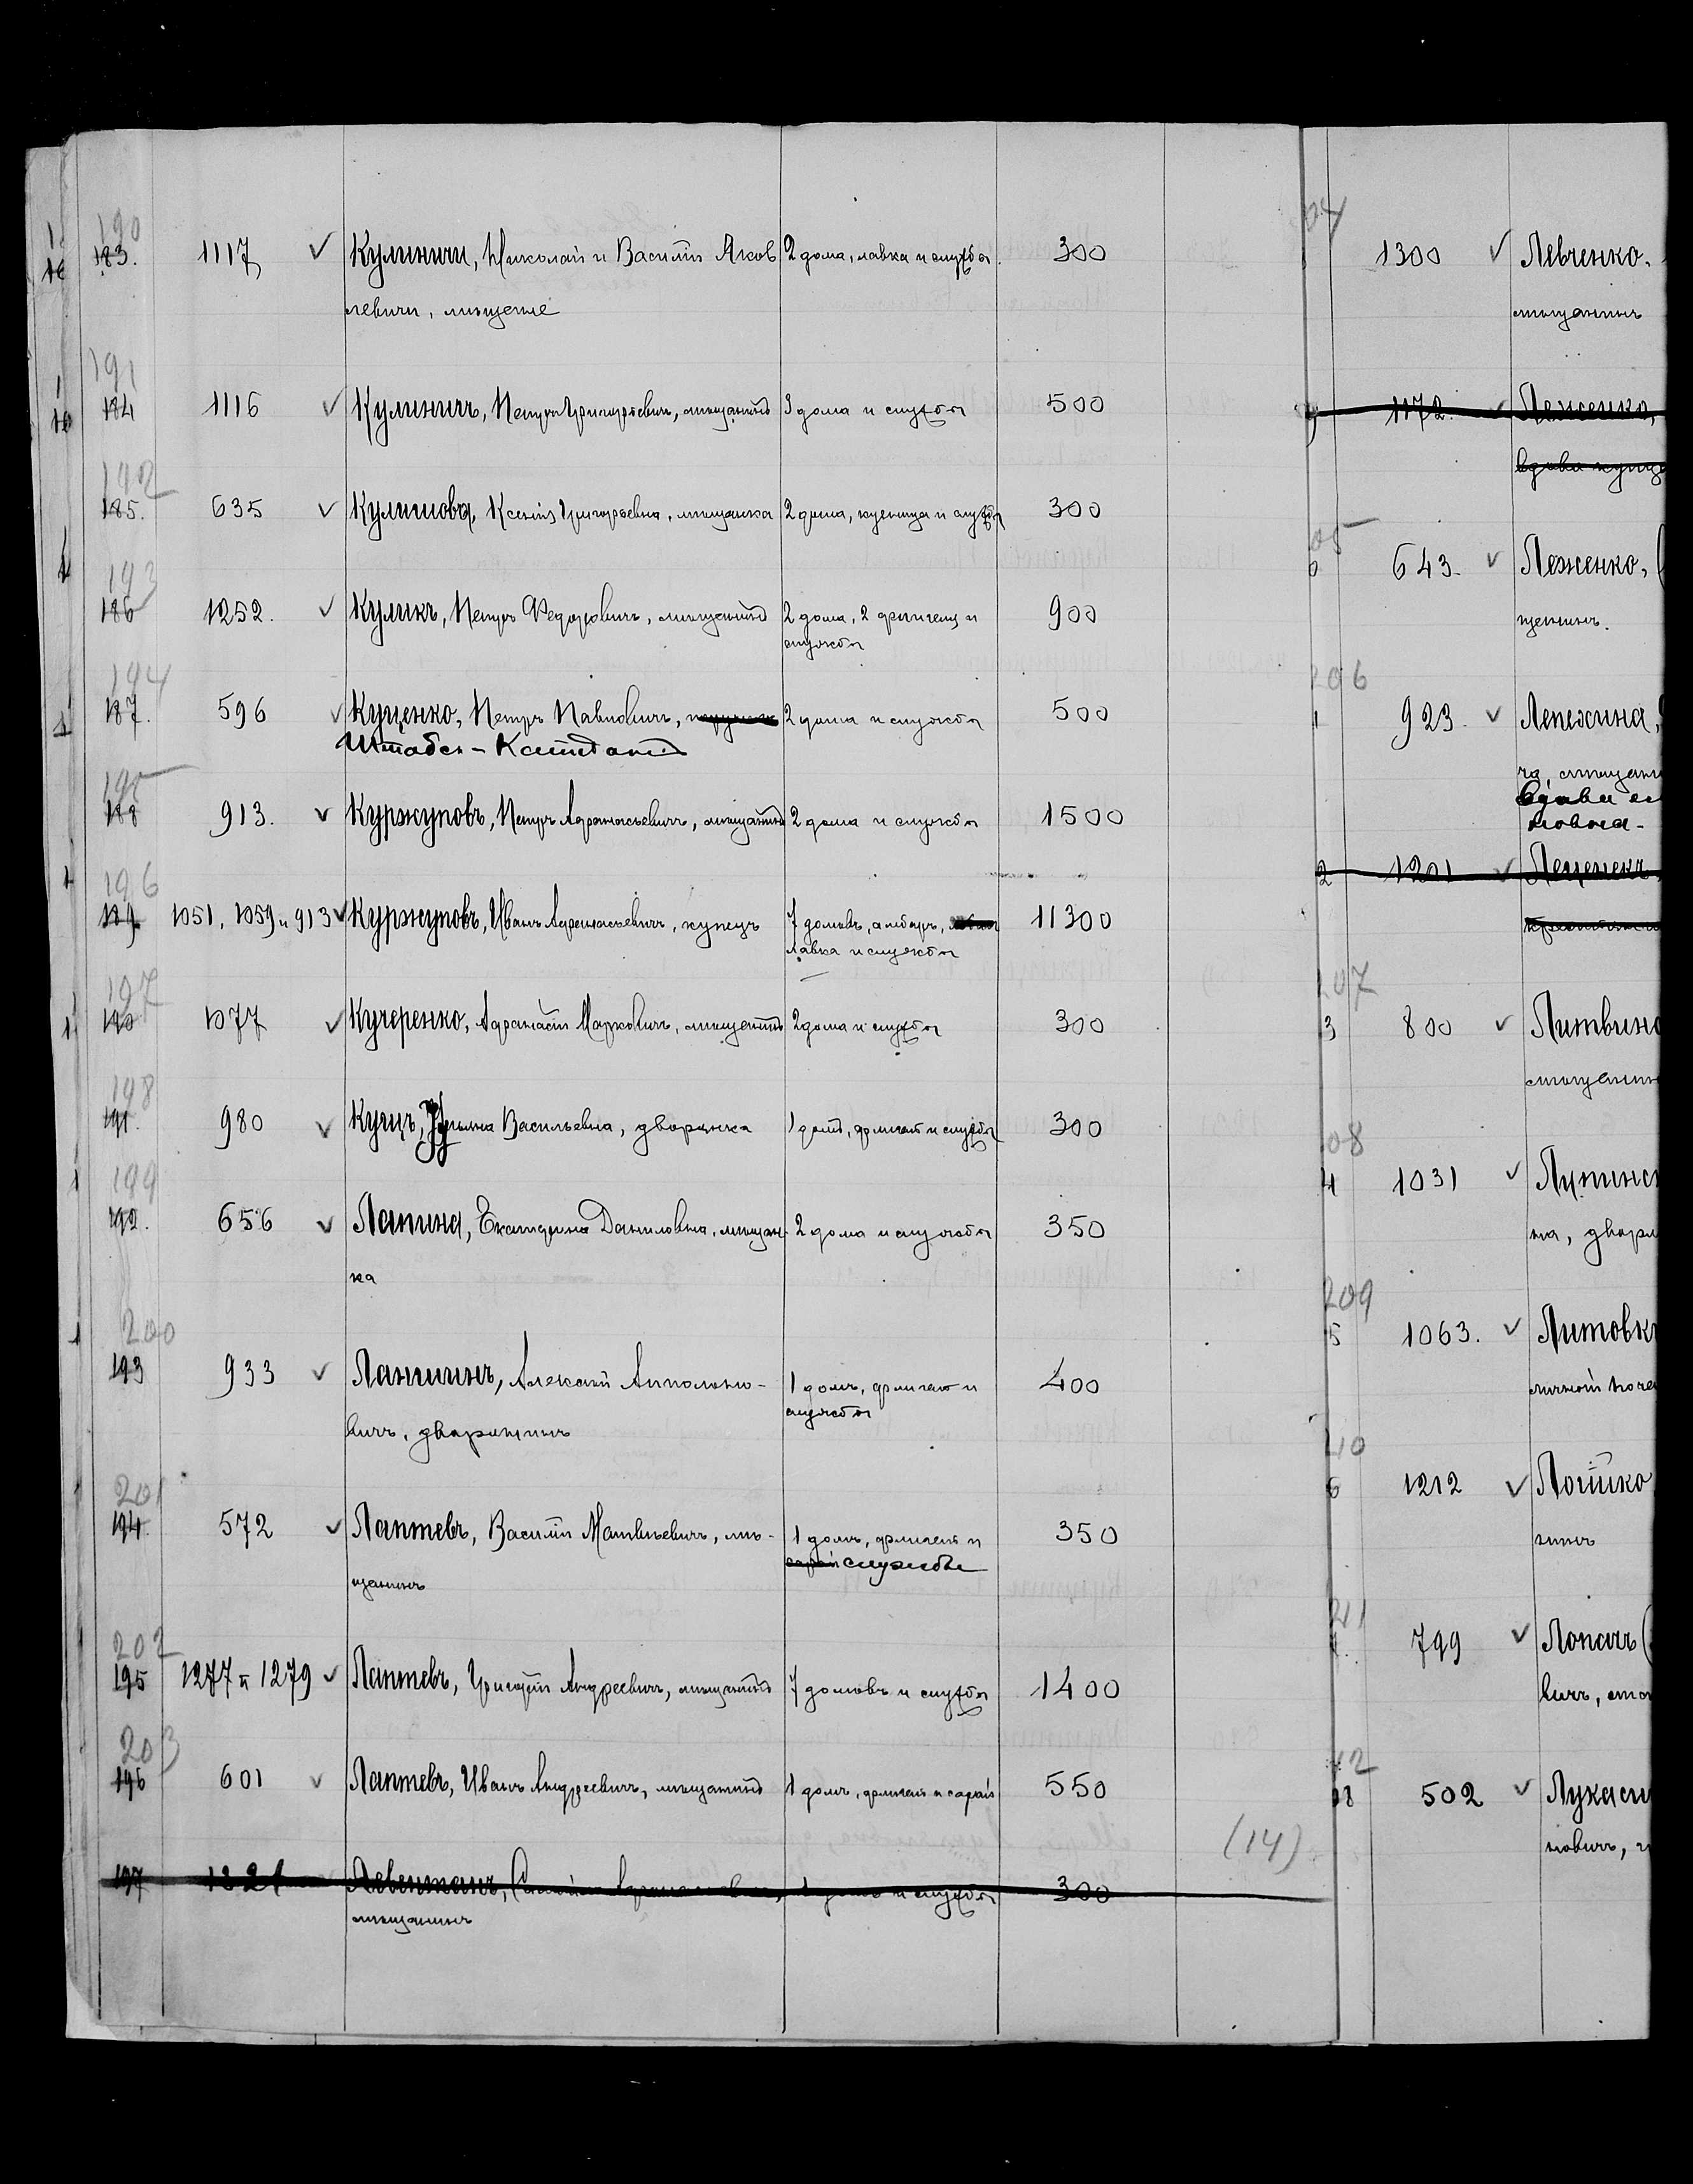 190
183. 1117 Кулиничи, Николай и Василій Яков 2 дома, лавка и службы 300
левичи, мѣщане
191
184 1116 Кулиничъ, Петръ Григорьевичъ, мѣщанинъ 3 дома и службы 500
192
185. 635 Кулишова, Ксенія Григорьевна, мѣщанка 2 дома, кузница и службы 300
193
186 1252. Куликъ, Петръ Федоровичъ, мѣщанинъ 2 дома, 2 флигеля и 900
службы
194
187. 596 Куценко, Петръ Павловичъ, 2 дома и службы 500
Штабсъ-Капитанъ
195
188 913. Куржуповъ, Петръ Афанасьевичъ, мѣщанинъ 2 дома и службы 1500
196
189. 1051, 1059 и 913 Куржуповъ, Иванъ Афанасьевичъ, купецъ 7 домовъ, амбаръ, 11300
лавка и службы
197
190 1077 Кучеренко, Афанасій Марковичъ, мѣщанинъ 2 дома и службы 300
198
191. 980 Кущъ, Васильевна, дворянка 1 домъ, флигель и службы 300
199
192. 656 Лапина, Екатерина Даниловна, мѣщан- 2 дома и службы 350
ка
200
193 933 Лапшинъ, Алексѣй Апполоно- 1 домъ, флигель и 400
вичъ, дворянинъ службы
201
194. 572 Лаптевъ, Василій Матвѣевичъ, мѣ- 1 домъ, флигель и 350
щанинъ сарай службы
202
195 1277 и 1279 Лаптевъ, Григорій Андреевичъ, мѣщанинъ 7 домовъ и службы 1400
203
196 601 Лаптевъ, Иванъ Андреевичъ, мѣщанинъ 1 домъ, флигель и сарай 550
(14)
197 1221 Левентанъ, 1 домъ и службы 300
мѣщанинъ
04
1300 Левченко.
мѣщанинъ
1172. Леженко,
вдова купца
05
0 643. Леженко,
щанинъ.
206
1 923. Лепехина,
ча, мѣщан
вдова
2 1201 Лещенекъ
207
3 800 Литвино
мѣщанин
08
4 1031 Лупинск
на, дворя
209
5 1063. Литовк
личной поче
10
6 1212 Лошко
нинъ
21
799 Лопачъ
вичъ, мѣ
12
18 502 Лукаси
новичъ,